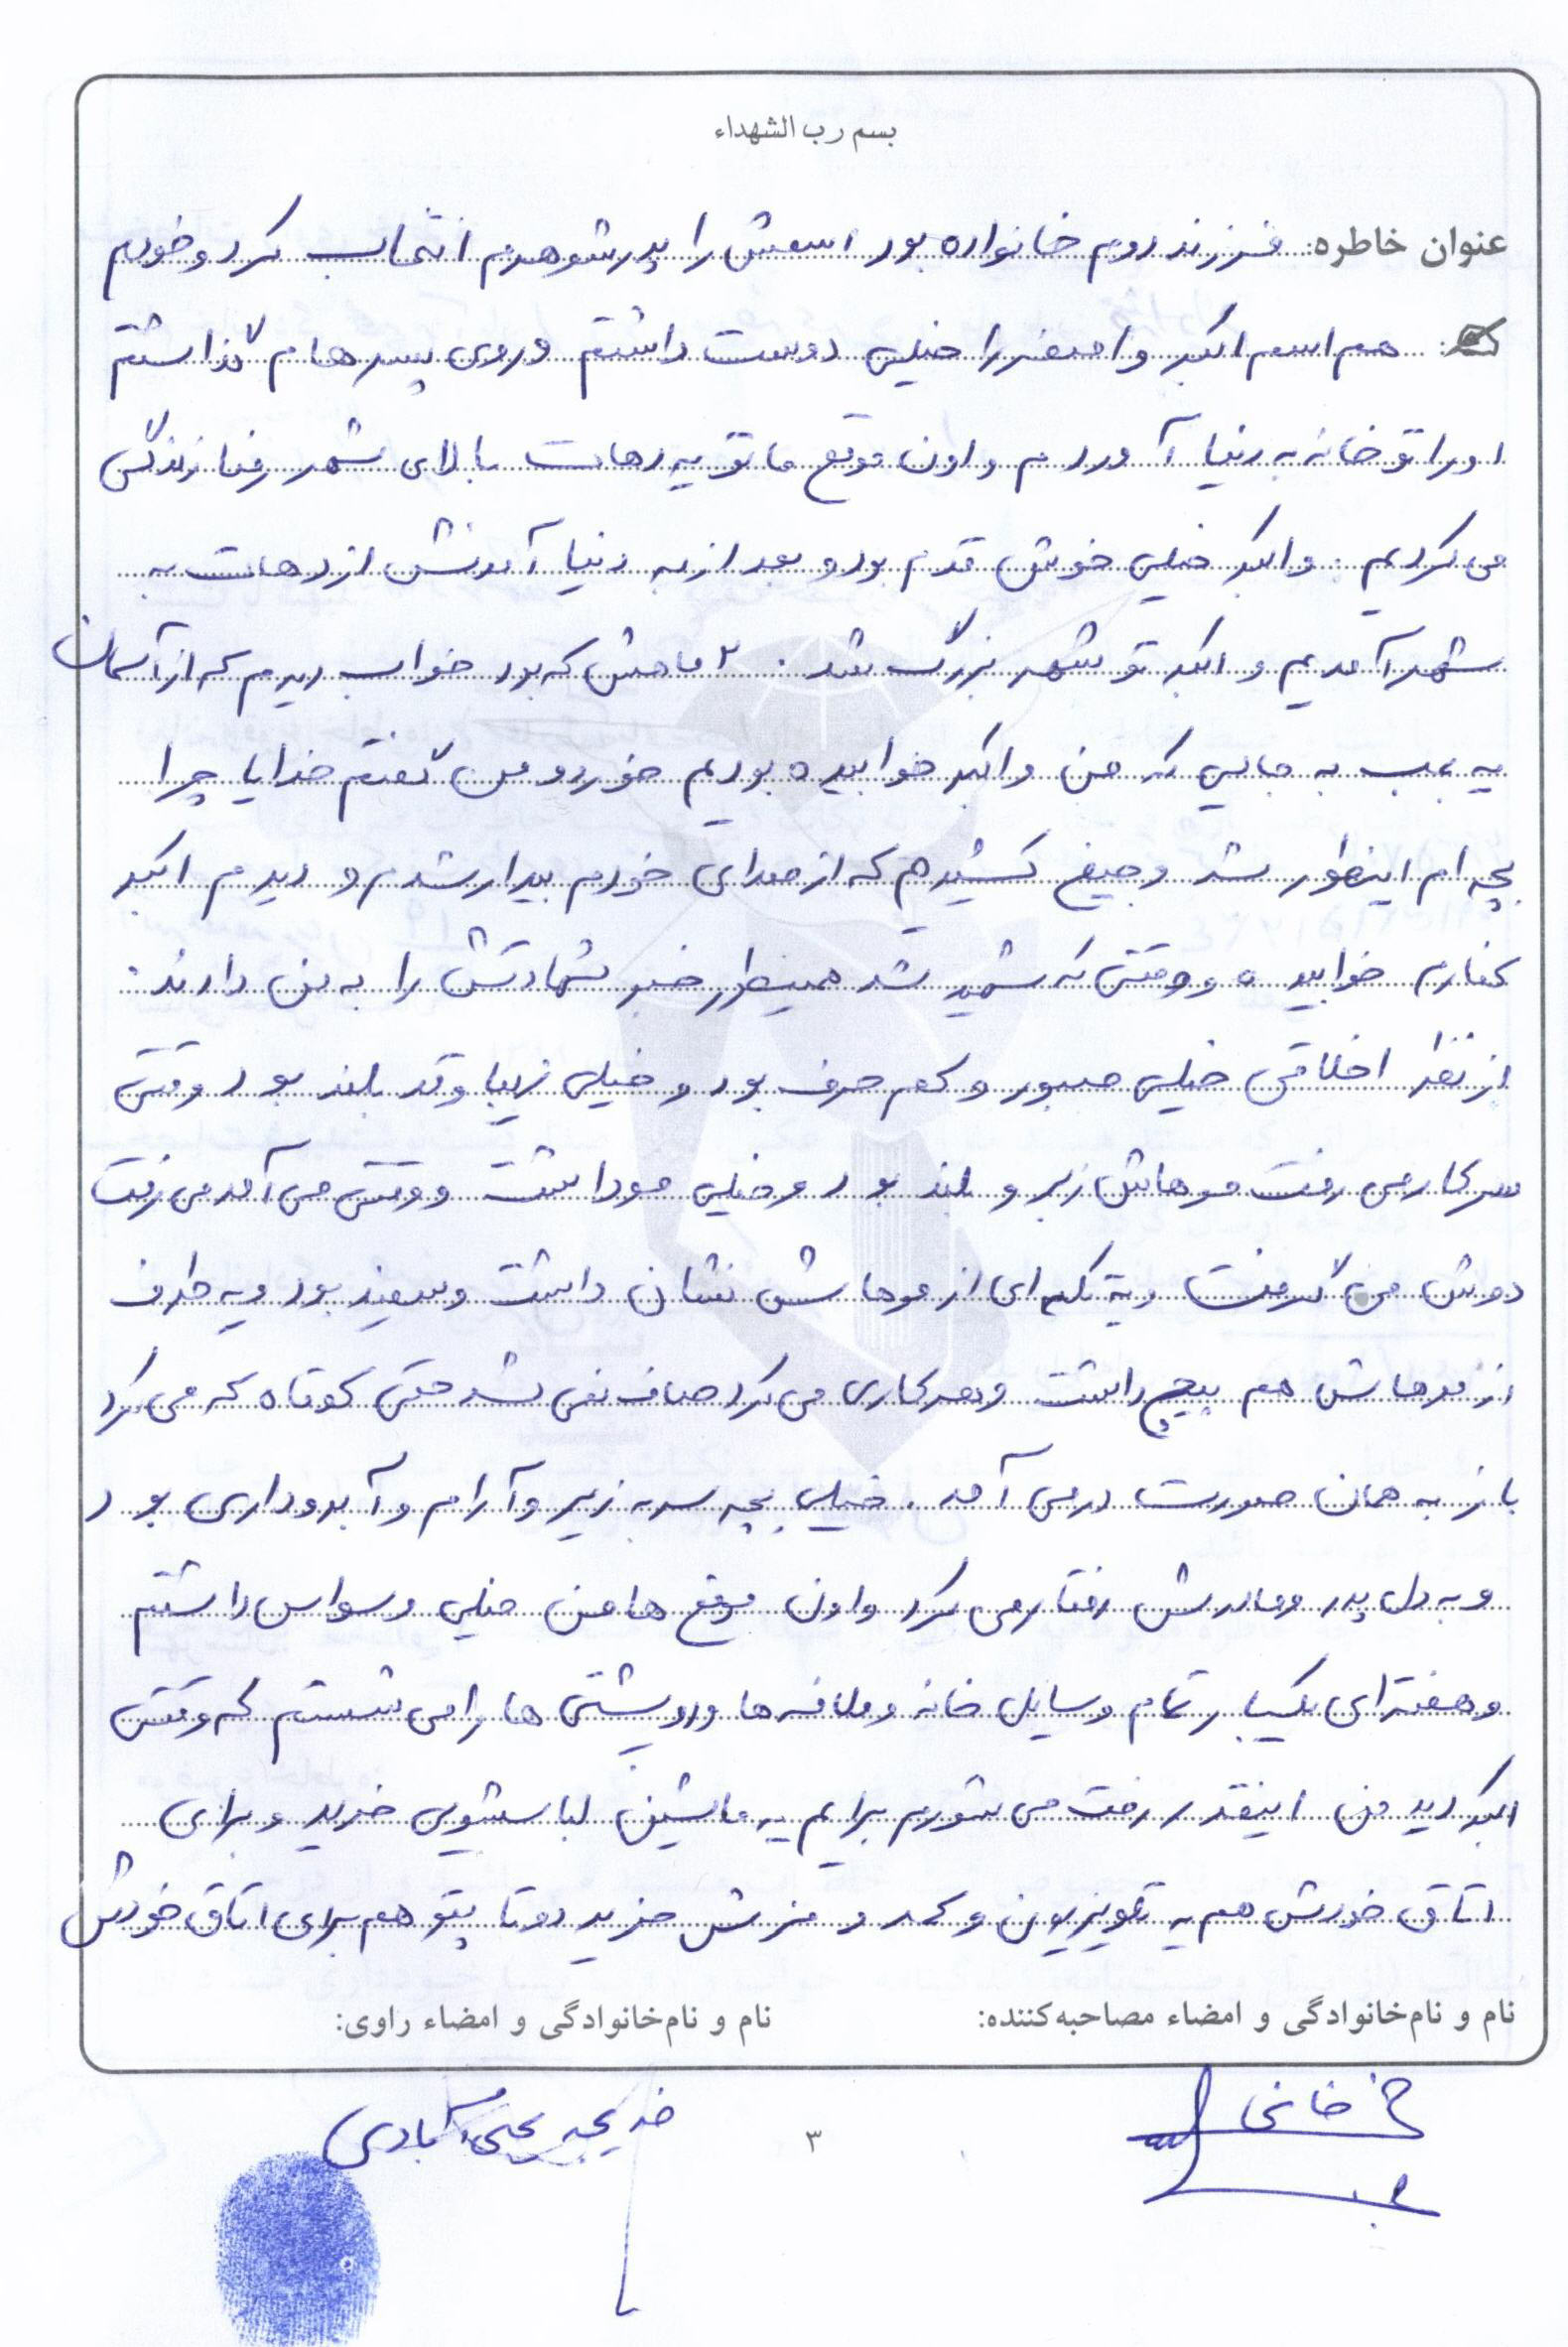 بسم رب الشهداء
عنوان خاطره: فرزند دوم خانواده بود اسمش را پدرشوهرم انتخاب کرد و خودم
هم اسم اکبر و اصغر را خیلی دوست داشتم و روی پسرهام گذاشتم
او را تو خانه به دنیا آوردم و اون موقع ما تو یه دهات بالای شهر رضا زندگی
می کردیم . و اکبر خیلی خوش قدم بود و بعد از به دنیا آمدنش از دهات به
شهر آمدیم و اکبر تو شهر بزرگ شد . ۲ ماهش که بود خواب دیدم که از آسمان
یه بمب به جایی که من و اکبر خوابیده بودیم خورد و من گفتم خدایا چرا
بچه ام اینطور شد و جیغ کشیدم که از صدای خودم بیدار شدم و دیدم اکبر
کنارم خوابیده و وقتی که شهید شد همینطور خبر شهادتش را به من دادند.
از نظر اخلاقی خیلی صبور و کم حرف بود و خیلی زیبا و قد بلند بود وقتی
سرکار می رفت موهاش زبر و بلند بود و خیلی مو داشت و وقتی می آمد می رفت
دوش می گرفت و یه تکه ای از موهاش نشان داشت و سفید بود و یه طرف
از موهاش هم پیچ داشت و هر کاری می کرد صاف نمی شد حتی کوتاه که می کرد
باز به همان صورت در می آمد . خیلی بچه سر به زیر و آرام و آبروداری بود
و به دل پدر و مادرش رفتار می کرد و اون موقع ها من خیلی وسواس داشتم
و هفته ای یکبار تمام وسایل خانه و ملافه ها و رو پشتی ها را می شستم که وقتی
اکبر دید من اینقدر رخت می شورم برایم یه ماشین لباسشویی خرید و برای
اتاق خودش هم یه تلویزیون و کمد و فرش خرید دو تا پتو هم برای اتاق خودش
نام و نام‌خانوادگی و امضاء مصاحبه‌کننده:
نام و نام‌خانوادگی و امضاء راوی:
خانی
خدیجه
۳